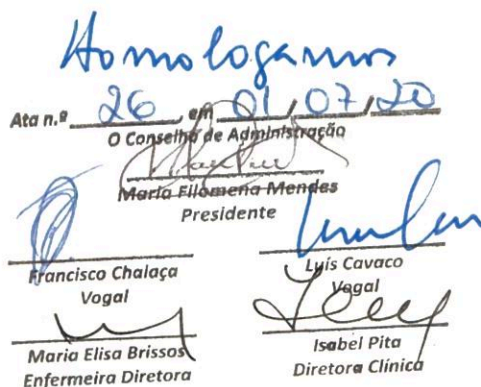 Homologamos
Ata n.º 26, em 01/07/20
O Conselho de Administração
Maria Filomena Mendes
Presidente
Francisco Chalaça
Vogal
Luís Cavaco
Vogal
Maria Elisa Brissos
Enfermeira Diretora
Isabel Pita
Diretora Clínica